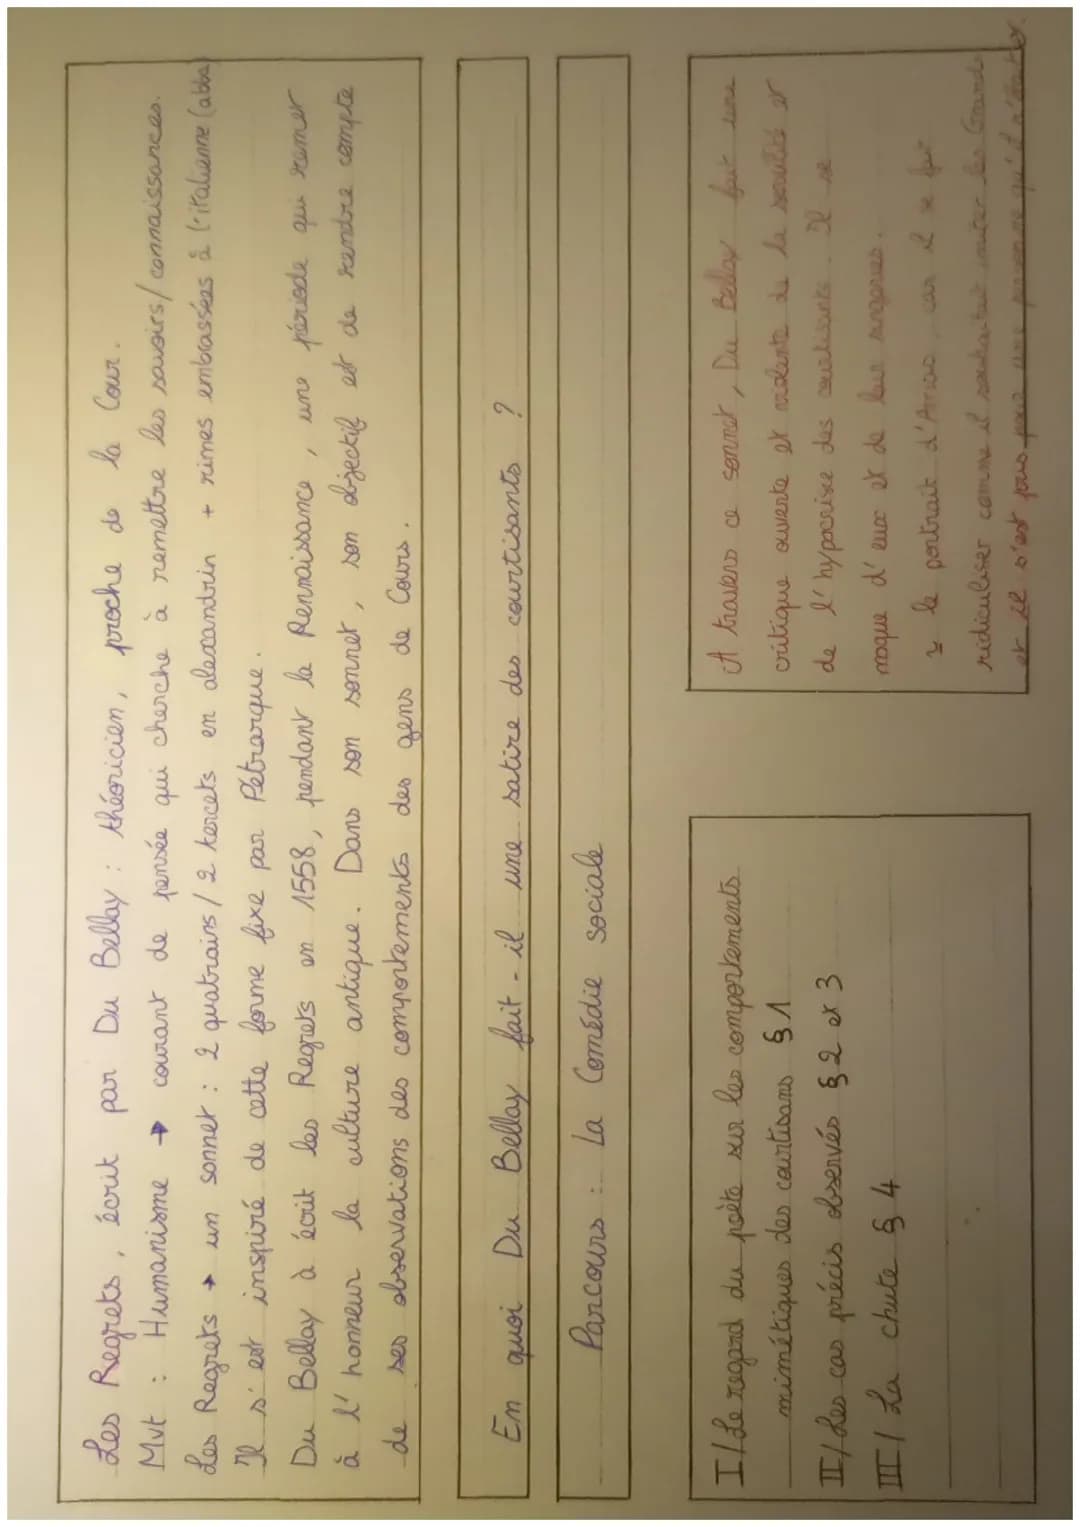 Les Regrets, écrit par Du Bellay : théoricien, proche de la Cour.
Mvt : Humanisme → courant de pensée qui cherche à remettre les savoirs/connaissances.
Les Regrets → un sonnet : 2 quatrains/2 tercets en alexandrin + rimes embrassées à l'italienne (abba)
Il s'est inspiré de cette forme fixe par Pétrarque.
Du Bellay à écrit les Regrets en 1558, pendant la Rennaissance, une période qui remer
à l'honneur la culture antique. Dans son sonnet, son objectif est de rendre compte
de ses observations des comportements des gens de Cours.
En quoi Du Bellay fait-il une satire des courtisants ?
Parcours : La Comédie sociale
I/ Le regard du poète sur les comportements
mimétiques des courtisans §1
II/ Les cas précis observés §2 et 3
III/ La chute §4
A travers ce sonnet, Du Bellay fait une
critique ouverte et violente de la servilité et
de l'hypocrisie des courtisants. Il se
moque d'eux et de leur singeries.
↳ le portrait d'Arrias, car il se fait
ridiculiser comme il souhaitait imiter les Grands
et il s'est fais passé une personne qu'il n'était